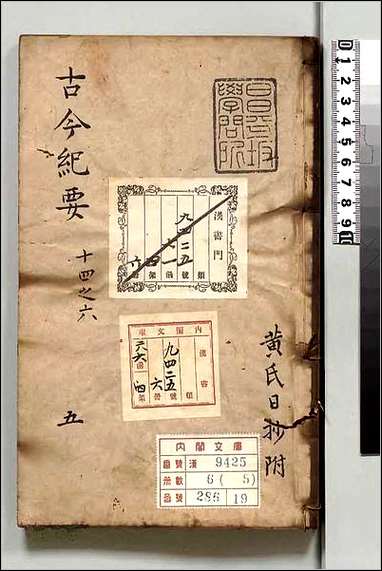 古今紀要
十四之六
五
黄氏日抄附
昌平坂
學問所
漢書門
九四二五
類
號
函
架
內閣文庫
漢書
九四二五
類
號
六
冊
函
架
內閣文庫
番號 漢 9425
冊數 6(5)
函號 286 19
0 1 2 3 4 5 6 7 8 9